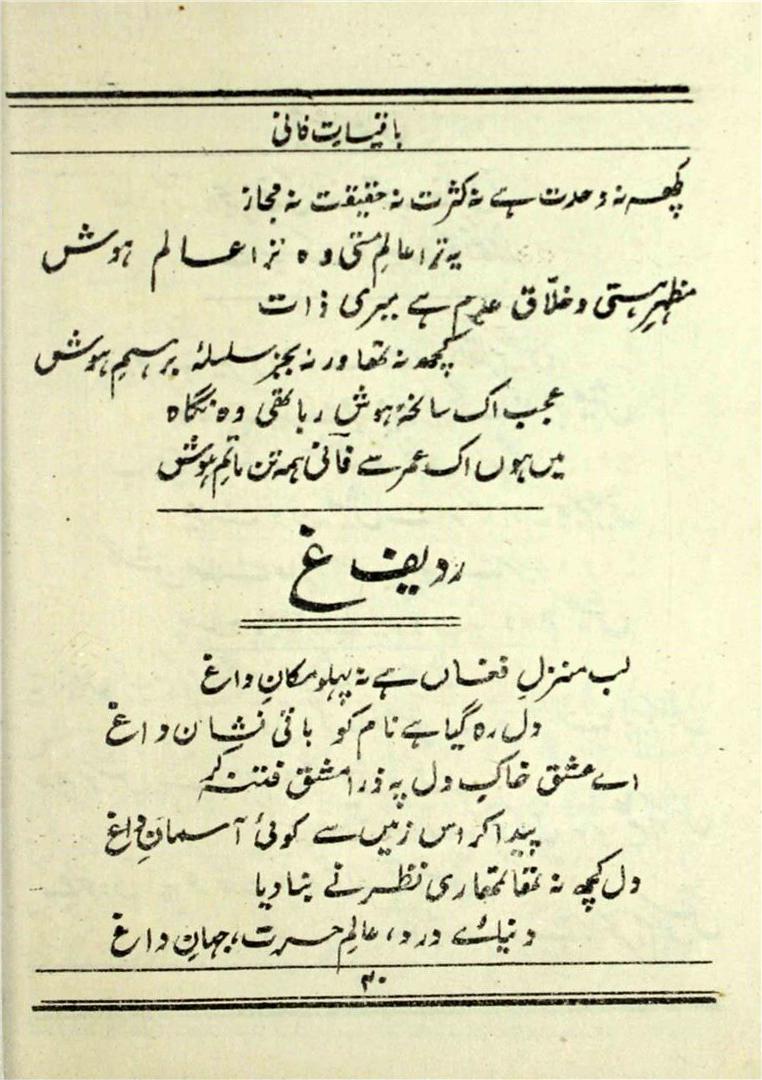 باقیات فانی
کچھ نہ وحدت ہے نہ کثرت نہ حقیقت نہ مجاز
یہ ترا عالمِ مستی وہ ترا عالم ہوش
مظہرِ ہستی و خلّاق عدم ہے میری ذات
کچھ نہ تھا ورنہ بجز سلسلۂ برہمِ ہوش
عجب اک سانحۂ ہوش ربا تھی وہ نگاہ
میں ہوں اک عمر سے فانی ہمہ تن ماتمِ ہوش
ردیف غ
لب منزلِ فغاں ہے نہ پہلو مکانِ داغ
دل رہ گیا ہے نام کو باقی نشان داغ
اے عشق خاکِ دل پہ ذرا مشق فتنہ کر
پیدا کر اس زمیں سے کوئی آسمانِ داغ
دل کچھ نہ تھا تمھاری نظر نے بنا دیا
دنیائے درد، عالمِ حسرت، جہانِ داغ
۳۰